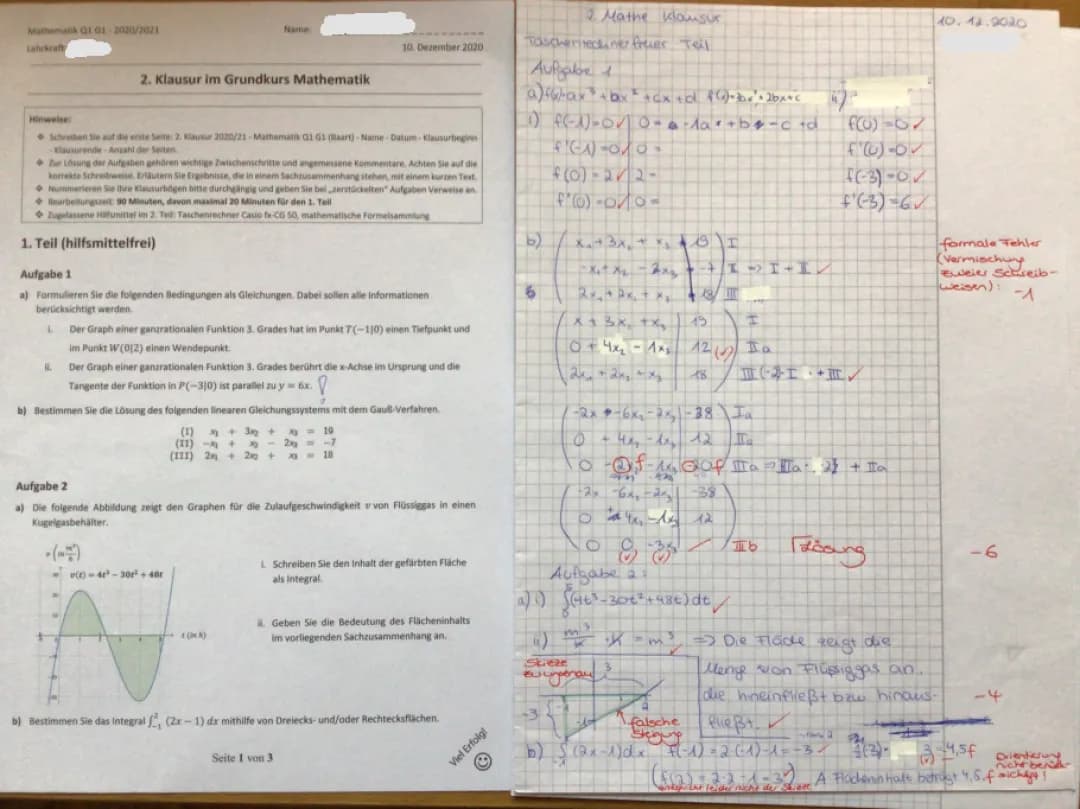 Mathematik Q1 G1 - 2020/2021
Name:
Lehrkraft
10. Dezember 2020
2. Klausur im Grundkurs Mathematik
Hinweise:
❖ Schreiben Sie auf die erste Seite: 2. Klausur 2020/21 - Mathematik Q1 G1 (Baart) - Name - Datum - Klausurbeginn
- Klausurende - Anzahl der Seiten.
❖ Zur Lösung der Aufgaben gehören wichtige Zwischenschritte und angemessene Kommentare. Achten Sie auf die
korrekte Schreibweise. Erläutern Sie Ergebnisse, die in einem Sachzusammenhang stehen, mit einem kurzen Text.
❖ Nummerieren Sie Ihre Klausurbögen bitte durchgängig und geben Sie bei „zerstückelten" Aufgaben Verweise an.
❖ Bearbeitungszeit: 90 Minuten, davon maximal 20 Minuten für den 1. Teil
❖ Zugelassene Hilfsmittel im 2. Teil: Taschenrechner Casio fx-CG 50, mathematische Formelsammlung
1. Teil (hilfsmittelfrei)
Aufgabe 1
a) Formulieren Sie die folgenden Bedingungen als Gleichungen. Dabei sollen alle Informationen
berücksichtigt werden.
i. Der Graph einer ganzrationalen Funktion 3. Grades hat im Punkt T(−1|0) einen Tiefpunkt und
im Punkt W(0|2) einen Wendepunkt.
ii. Der Graph einer ganzrationalen Funktion 3. Grades berührt die x-Achse im Ursprung und die
Tangente der Funktion in P(−3|0) ist parallel zu y = 6x. !
b) Bestimmen Sie die Lösung des folgenden linearen Gleichungssystems mit dem Gauß-Verfahren.
(I) x₁ + 3x₂ + x₃ = 19
(II) −x₁ + x₂ − 2x₃ = −7
(III) 2x₁ + 2x₂ + x₃ = 18
Aufgabe 2
a) Die folgende Abbildung zeigt den Graphen für die Zulaufgeschwindigkeit v von Flüssiggas in einen
Kugelgasbehälter.
v (in m³/h)
v(t) = 4t³ − 30t² + 48t
t (in h)
i. Schreiben Sie den Inhalt der gefärbten Fläche
als Integral.
ii. Geben Sie die Bedeutung des Flächeninhalts
im vorliegenden Sachzusammenhang an.
b) Bestimmen Sie das Integral ∫₋₁² (2x − 1) dx mithilfe von Dreiecks- und/oder Rechtecksflächen.
Viel Erfolg!
Seite 1 von 3
2. Mathe Klausur
10.12.2020
Taschenrechner freier Teil
Aufgabe 1
a) f(x)=ax³+bx²+cx+d f'(x)=3ax²+2bx+c ii)
i) f(-1)=0 ✓ 0= -1a+b-c+d f(0)=0 ✓
f'(-1)=0 ✓ 0= f'(0)=0 ✓
f(0)=2 ✓ 2= f(-3)=0 ✓
f''(0)=0 ✓ 0= f'(-3)=6 ✓
b) x₁+3x₂+x₃ 19 I
-x₁+x₂-2x₃ -7 II => I+II ✓
2x₁+2x₂+x₃ 18 III
formale Fehler
(Vermischung
zweier Schreib-
weisen):
-1
x+3x₂+x₃ 19 I
0+4x₂-1x₃ 12 (✓) IIa
2x₁+2x₂+x₃ 18 III (-2)·I + III ✓
-2x-6x₂-2x₃ -38 Ia
0+4x₂-1x₃ 12 IIa
0 -2 f -1x₃ f IIIa => IIIa· 2 + IIa
-2x -6x₂-2x₃ -38
0 +4x₂ -1x₃ 12
0 0 -3x₃ IIIb Lösung
(✓) (✓)
-6
Aufgabe 2:
a) i) ∫(4t³-30t²+48t)dt ✓
ii) m³/h · h = m³ ✓ => Die Fläche zeigt die
Menge von Flüssiggas an,
die hineinfließt bzw hinaus-
fließt. ✓
-4
Skizze
zu ungenau
3
-3
-1
2
falsche
Steigung
b) ∫(2x-1)dx f(-1)=2·(-1)-1=-3 ✓ 3=4,5 f
(✓)
(f(2)=2·2-1=3 ✓) A Flächeninhalt beträgt 4,5. f
entspricht leider nicht der Skizze
Orientierung
nicht berück-
sichtigt!